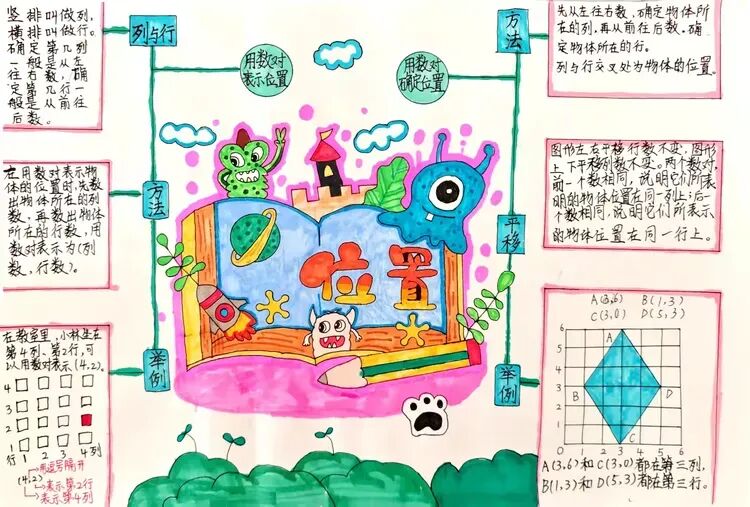 竖排叫做列,
横排叫做行。
确定第几列
一般是从左
往右数,确
定第几行一
般是从前往
后数。
列与行
用数对
表示位置
在用数对表示物
体的位置时,先数
出物体所在的列
数,再数出物体
所在的行数,用
数对表示为(列
数,行数)。
方法
在教室里,小林坐在
第4列、第2行,可
以用数对表示(4,2)。
举例
4
3
2
1
行 1 2 3 4列
用逗号隔开
(4,2)
表示第2行
表示第4列
位置
用数对
确定位置
方法
先从左往右数,确定物体所
在的列,再从前往后数,确
定物体所在的行。
列与行交叉处为物体的位置。
平移
图形左右平移行数不变,图形
上、下平移列数不变。两个数对,
前一个数相同,说明它们所表
明的物体位置在同一列上;后一
个数相同,说明它们所表示
的物体位置在同一行上。
举例
A(3,6) B(1,3)
C(3,0) D(5,3)
6
5
4
3
2
1
0 1 2 3 4 5 6
A
B
D
C
A(3,6)和C(3,0)都在第三列,
B(1,3)和D(5,3)都在第三行。